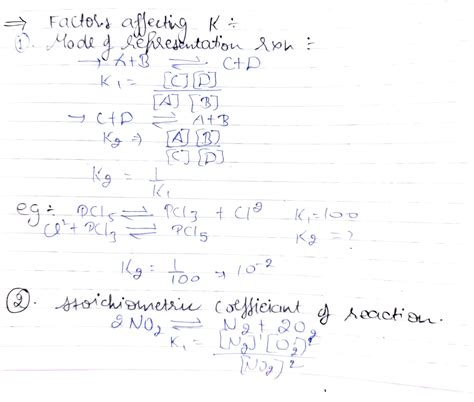 ⇒ Factors affecting K ÷
①. Mode of representation rxn ÷
→ A+B ⇌ C+D
K₁ = [C][D] / [A][B]
→ C+D ⇌ A+B
K₂ ⇒ [A][B] / [C][D]
K₂ = 1/K₁
eg ÷ PCl₅ ⇌ PCl₃ + Cl² K₁=100
Cl² + PCl₃ ⇌ PCl₅ K₂ = ?
K₂ = 1/100 → 10⁻²
②. stoichiometric coefficient of reaction.
2NO₂ ⇌ N₂ + 2O₂
K₁ = [N₂]¹[O₂]² / [NO₂]²